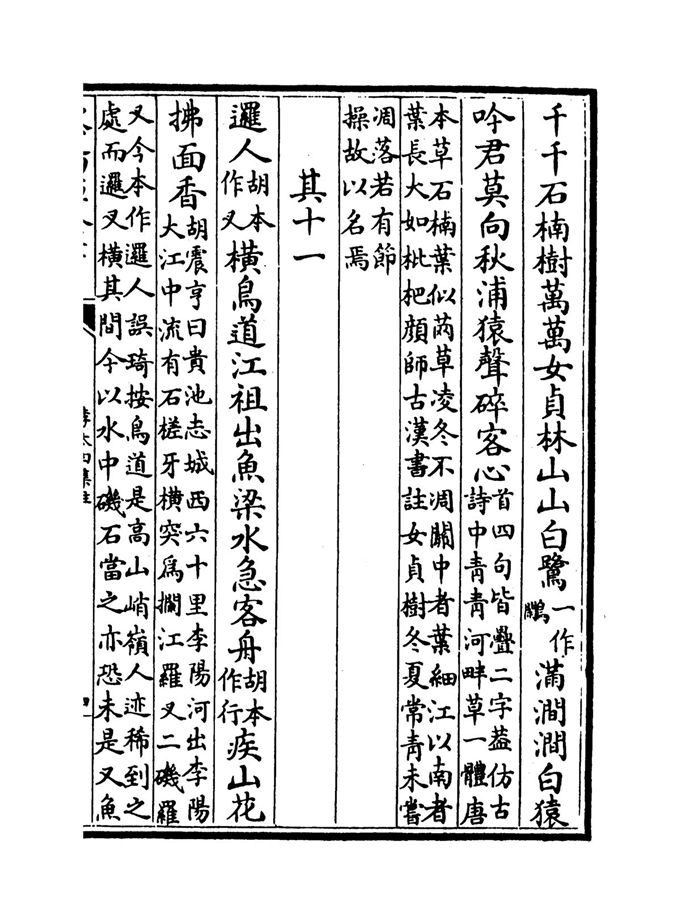 千千石楠樹萬萬女貞林山山白鷺一作鷳滿澗澗白猿
吟君莫向秋浦猿聲碎客心首四句皆疊二字葢仿古
詩中青青河畔草一體唐
本草石楠葉似芮草凌冬不凋關中者葉細江以南者
葉長大如枇杷顔師古漢書註女貞樹冬夏常青未嘗
凋落若有節
操故以名焉
其十一
邏人胡本作叉橫鳥道江祖出魚梁水急客舟胡本作行疾山花
拂面香胡震亨曰貴池志城西六十里李陽河出李陽
大江中流有石槎牙橫突爲攔江羅叉二磯羅
叉今本作邏人誤琦按鳥道是高山峭嶺人迹稀到之
處而邏叉橫其間今以水中磯石當之亦恐未是又魚